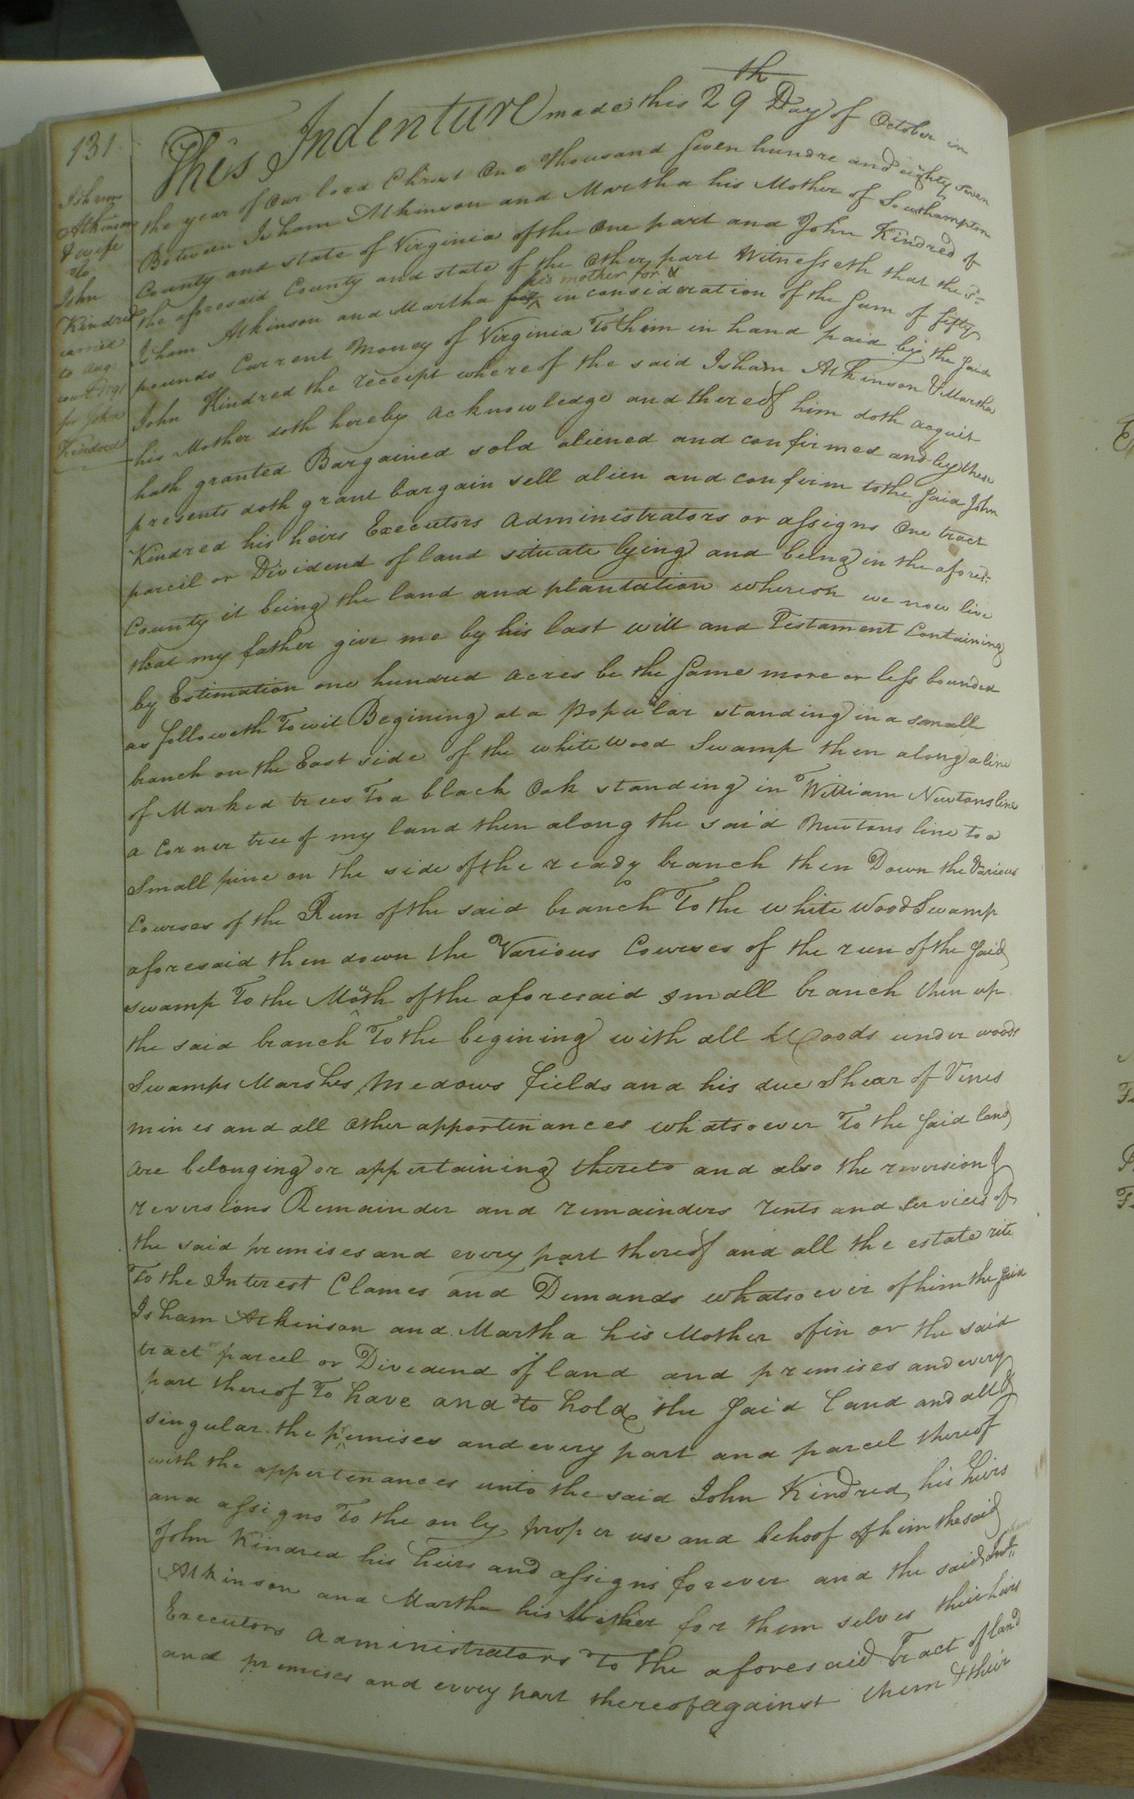 131
Isham
Atkinson
& wife
to
John
Kindred
carried
to Aug.
court 1791
for John
Kindred
This Indenture made this 29th Day of October in
the year of our lord Christ One thousand Seven hundre and eighty seven
Between Isham Atkinson and Martha his Mother of Southampton
County and state of Virginia of the One part and John Kindred of
the aforesaid County and state of the Other part Witnesseth that the sd
Isham Atkinson and Martha his mother for & in consideration of the Sum of fifty
pounds Current Money of Virginia To them in hand paid by the said
John Kindred the receipt whereof the said Isham Atkinson & Martha
his Mother doth hereby acknowledge and thereof him doth acquit
hath granted Bargained sold aliened and confirmed and by these
presents doth grant bargain sell alien and confirm to the said John
Kindred his heirs Executors administrators or assigns One tract
parcil or Dividend of land situate lying and being in the aforesd
County it being the land and plantation whereon we now live
that my father give me by his last will and Testament Containing
by Estimation one hundred acres be the same more or less bounded
as followeth Towit Begining at a populár standing in a small
branch on the East side of the white wood Swamp then along a line
of Marked trees To a black Oak standing in To William Newtons line
a Corner tree of my land then along the said Newtons line to a
Small pine on the side of the ready branch then Down the Various
Courses of the Run of the said branch To the white Wood Swamp
aforesaid then down the Various Courses of the run of the said
swamp To the Mouth of the aforesaid small branch then up
the said branch To the begining with all Woods under woods
Swamps Marshes Medows fields and his due Shear of Vines
mines and all other appertinances whatsoever To the said land
are belonging or appertaining thereto and also the reversion &
reversions Remainder and remainders rents and services of
the said premises and every part thereof and all the estate rite
To the Interest Clames and Demands whatsoever of him the said
Isham Atkinson and Martha his Mother of in or the said
tract parcel or Dividend of land and premises and every
part thereof To have and to hold the said land and all &
singular the premises and every part and parcel thereof
with the appertenances unto the said John Kindred his heirs
and assigns To the only proper use and behoof of him the said
John Kindred his heirs and assigns forever and the said
Atkinson and Martha his Mother for them selves their heirs
Executors administrators To the aforesaid Tract of land
and premises and every part thereof against them & their